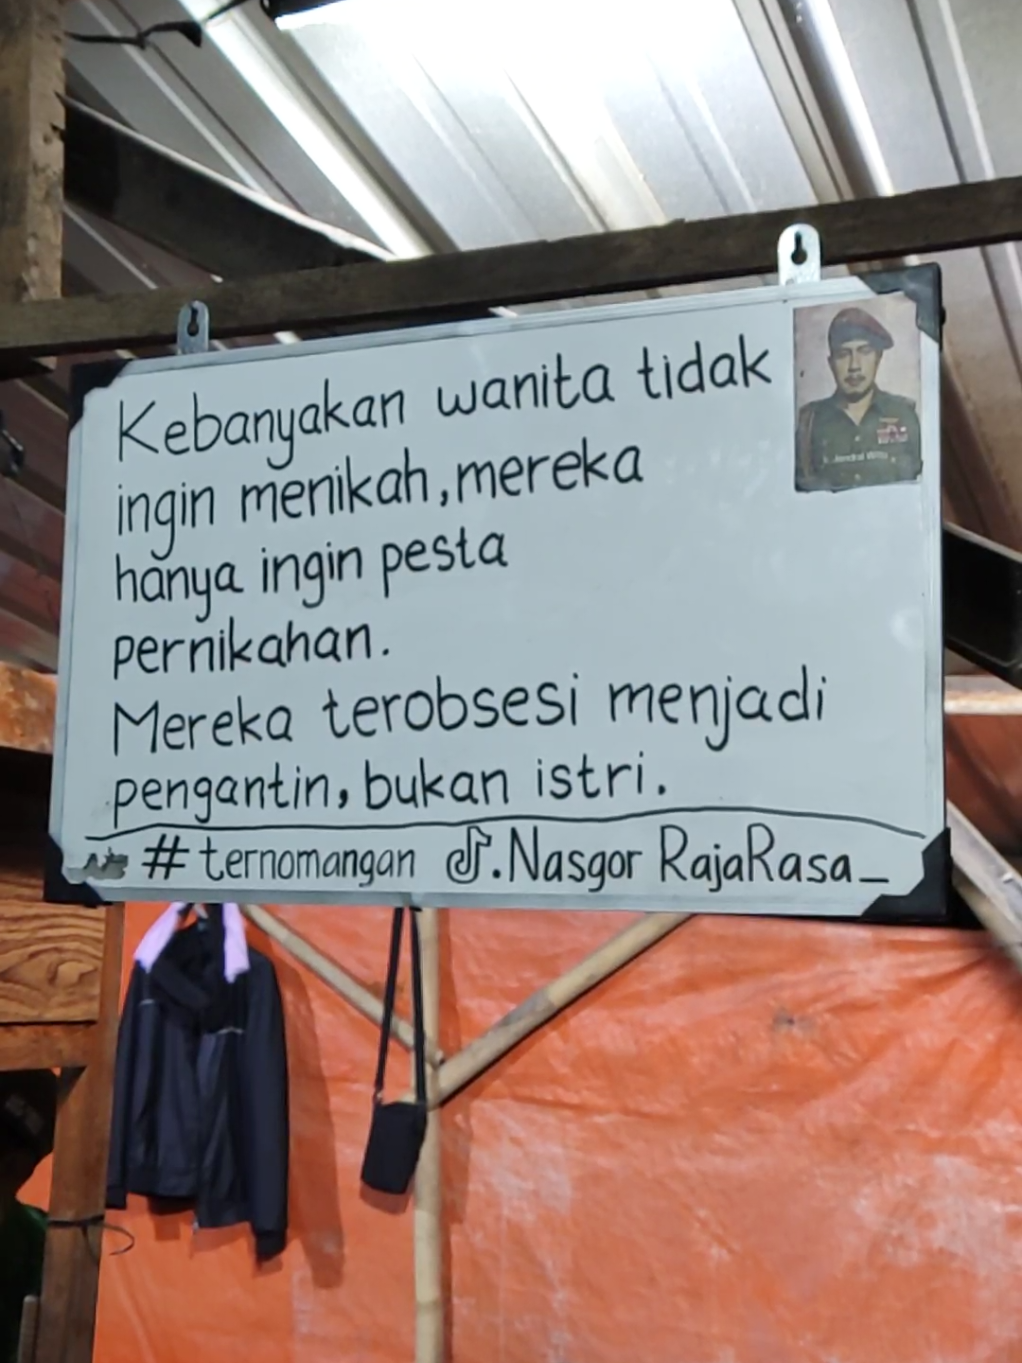 Kebanyakan wanita tidak
ingin menikah, mereka
hanya ingin pesta
pernikahan.
Mereka terobsesi menjadi
pengantin, bukan istri.
#ternomangan . Nasgor RajaRasa_